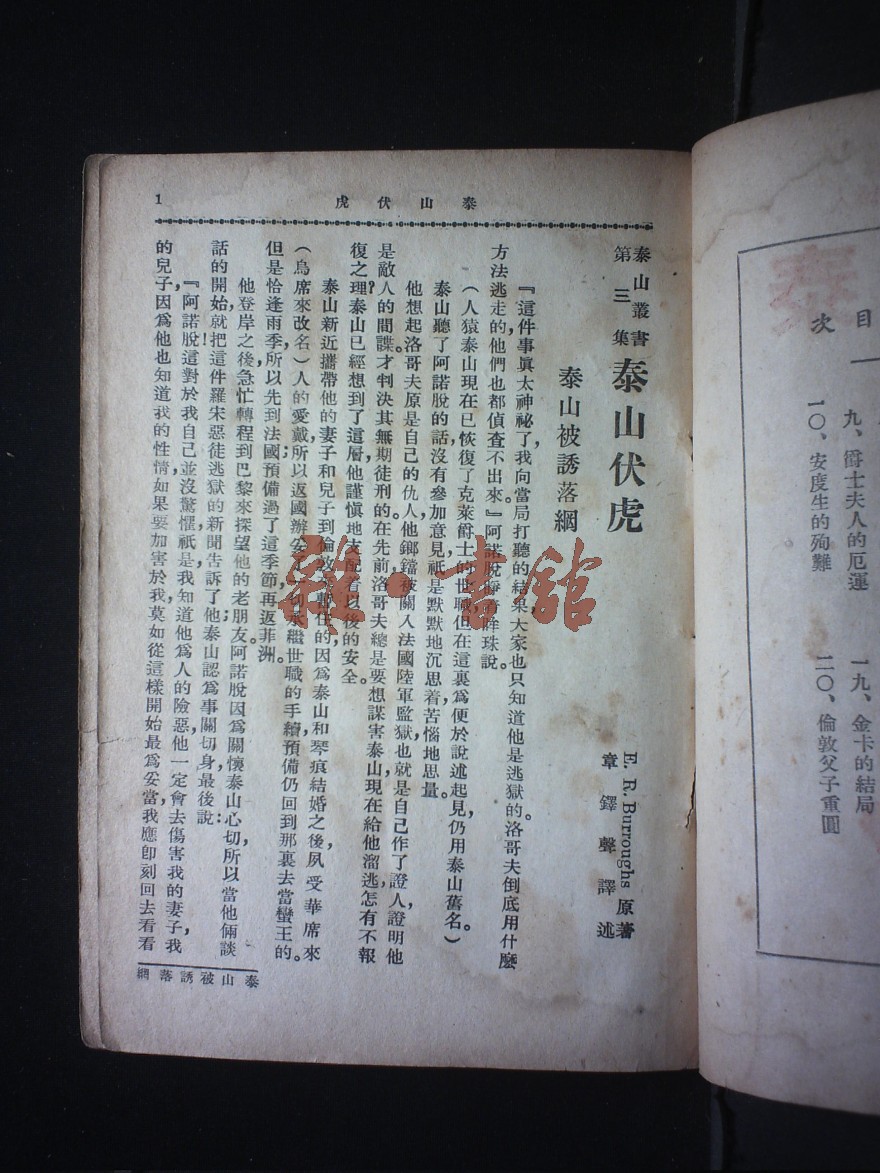 目次
九、爵士夫人的厄運
一〇、安度生的殉難
一九、金卡的結局
二〇、倫敦父子重圓
泰山伏虎
1
泰山叢書
第三集
泰山伏虎
E. R. Burroughs 原著
章鐸聲譯述
泰山被誘落網
『這件事眞太神祕了,我向當局打聽的結果,大家也只知道他是逃獄的。洛哥夫倒底用什麼
方法逃走的,他們也都偵查不出來。』阿諾脫睜着眸珠說。
(人猿泰山現在已恢復了克萊爵士的世職,但在這裏爲便於說述起見,仍用泰山舊名。)
泰山聽了阿諾脫的話,沒有參加意見,祇是默默地沉思着,苦惱地思量。
他想起洛哥夫原是自己的仇人,他鎯鐺被關入法國陸軍監獄,也就是自己作了證人,證明他
是敵人的間諜,才判決其無期徒刑的。在先前洛哥夫總是要想謀害泰山,現在給他溜逃,怎有不報
復之理?泰山已經想到了這層,他謹愼地支配着以後的安全。
泰山新近攜帶他的妻子和兒子到倫敦來暫住的,因爲泰山和琴痕結婚之後,夙受華席來
(烏席來改名)人的愛戴,所以返國辦安一切承繼世職的手續,預備仍回到那裏去當蠻王的。
但是恰逢雨季,所以先到法國,預備過了這季節再返菲洲。
他登岸之後,急忙轉程到巴黎來探望他的老朋友阿諾脫,因爲關懷泰山心切,所以當他倆談
話的開始,就把這件羅宋惡徒逃獄的新聞告訴了他。泰山認爲事關切身,最後說:
『阿諾脫!這對於我自己並沒驚懼,祇是我知道他爲人的險惡,他一定會去傷害我的妻子,我
的兒子,因爲他也知道我的性情,如果要加害於我,莫如從這樣開始最爲妥當,我應卽刻回去看看
泰山被誘落網
龍·書館